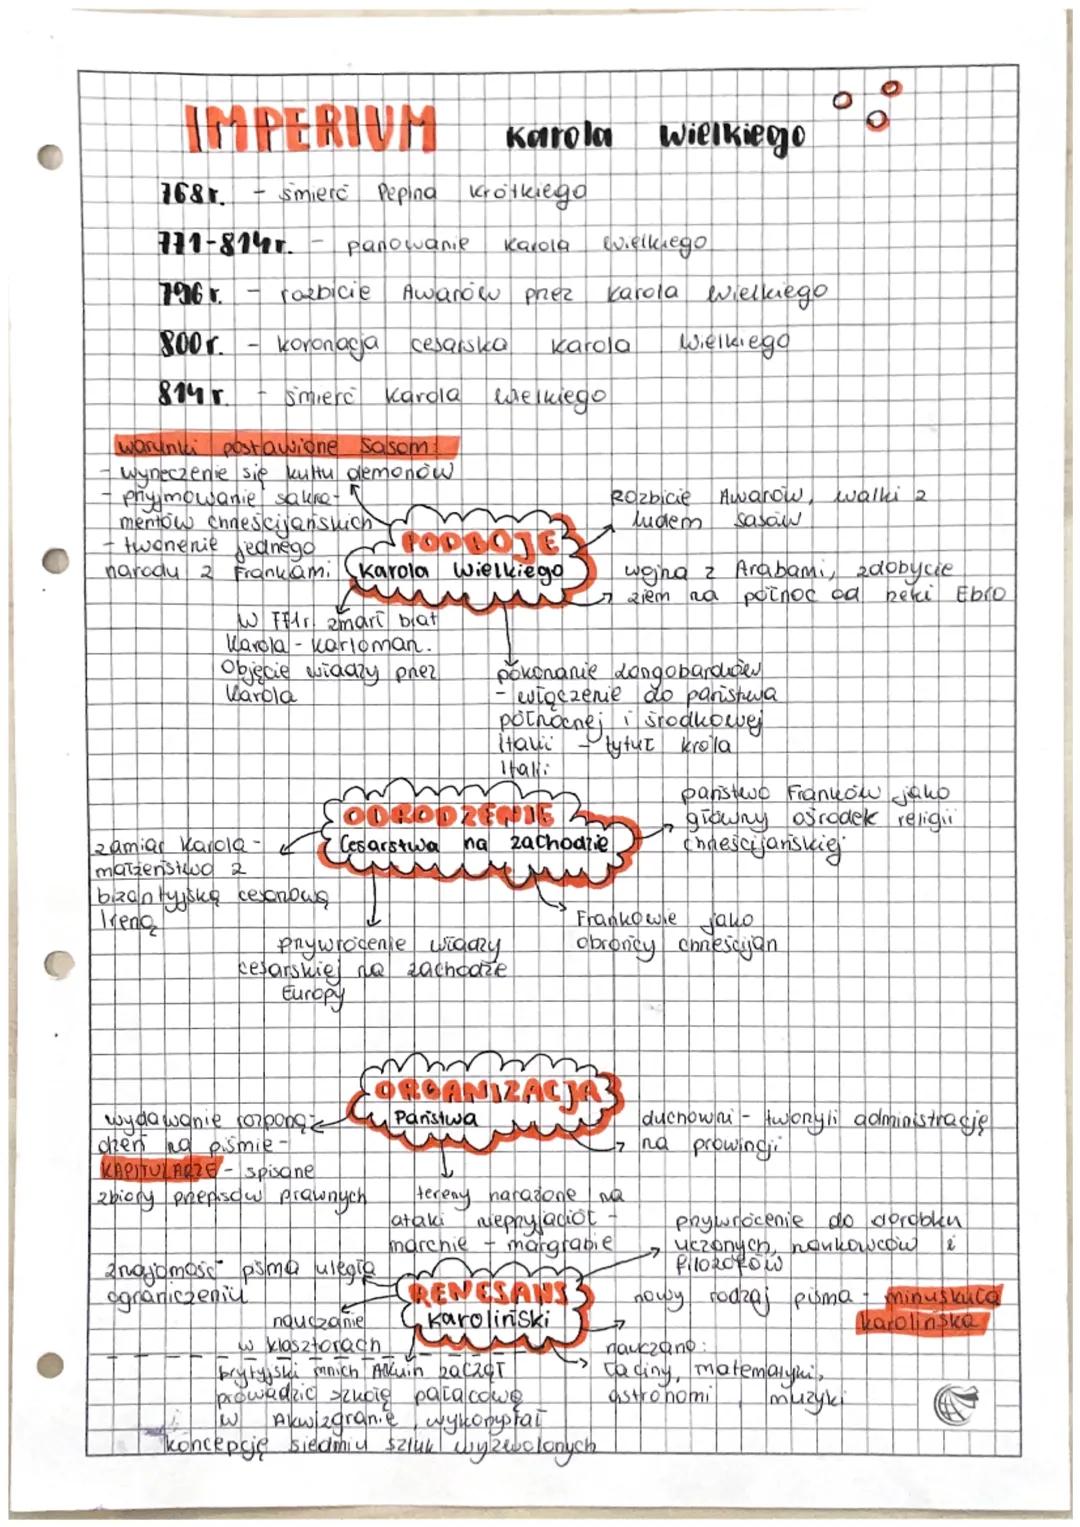 IMPERIUM Karola Wielkiego
768r. - śmierć Pepina Krótkiego
771-814r. - panowanie Karola Wielkiego
796r. - rozbicie Awarów przez Karola Wielkiego
800r. - koronacja cesarska Karola Wielkiego
814r. - śmierć Karola Wielkiego
warunki postawione Sasom:
- wyrzeczenie się kultu demonów
- przyjmowanie sakra-
mentów chrześcijańskich
- tworzenie jednego
narodu z Frankami
PODBOJE
Karola Wielkiego
Rozbicie Awarów, walki z
ludem Sasów
wojna z Arabami, zdobycie
ziem na północ od rzeki Ebro
W 771r. zmarł brat
Karola - Karloman.
Objęcie władzy przez
Karola
pokonanie Longobardów
- włączenie do państwa
północnej i środkowej
Italii - tytuł króla
Italii
ODRODZENIE
Cesarstwa na zachodzie
państwo Franków jako
główny ośrodek religii
chrześcijańskiej
zamiar Karola -
małżeństwo z
bizantyjską cesarzową
Ireną
przywrócenie władzy
cesarskiej na zachodzie
Europy
Frankowie jako
obrońcy chrześcijan
ORGANIZACJA
Państwa
wydawanie rozporzą-
dzeń na piśmie -
KAPITULARZE - spisane
zbiory przepisów prawnych
duchowni - tworzyli administrację
na prowincji
tereny narażone na
ataki nieprzyjaciół -
marchie - margrabie
RENESANS
Karoliński
przywrócenie do dorobku
uczonych, naukowców i
filozofów
znajomość pisma uległa
ograniczeniu
nauczanie
w klasztorach
nowy rodzaj pisma - minuskuła
karolińska
nauczano:
łaciny, matematyki,
astronomi muzyki
brytyjski mnich Alkuin zaczął
prowadzić szkołę pałacową
w Akwizgranie, wykorzystał
koncepcję siedmiu sztuk wyzwolonych